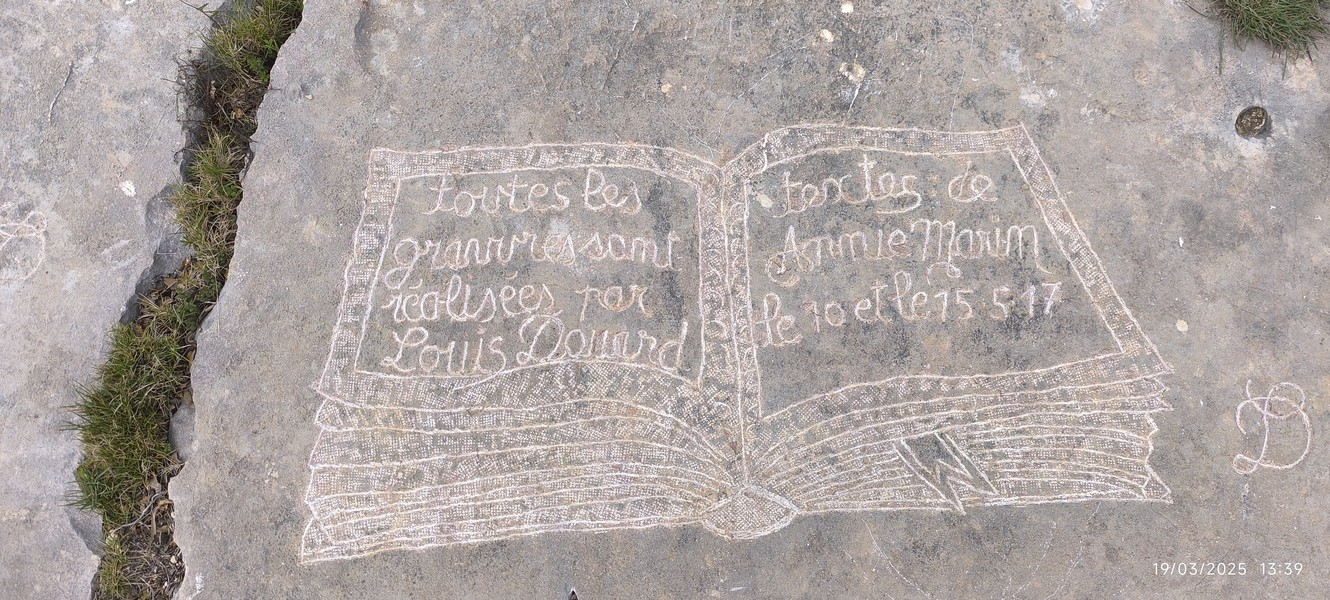 toutes les
gravures sont
réalisées par
Louis Douard
textes de
Annie Marin
le 10 et le 15 5 17
19/03/2025 13:39